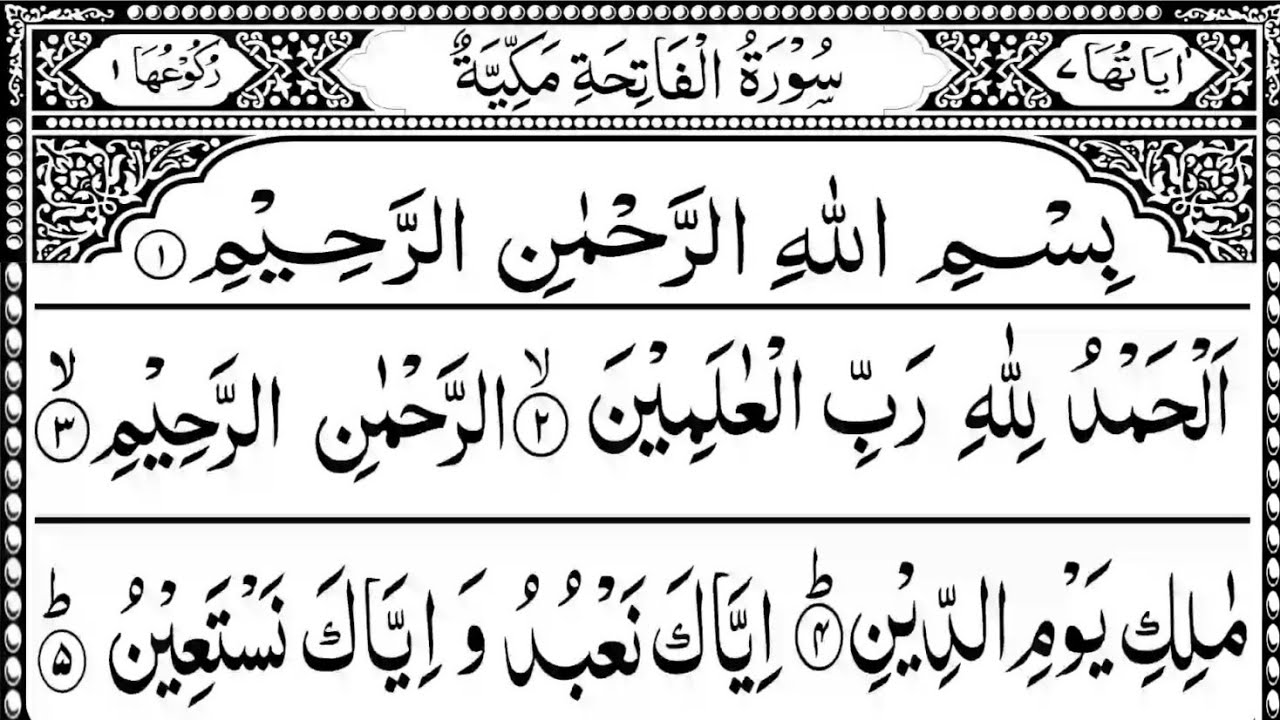 اٰيَاتُهَا ٧ سُوْرَةُ الْفَاتِحَةِ مَكِّيَّةٌ رُكُوْعُهَا ١
بِسْمِ اللّٰهِ الرَّحْمٰنِ الرَّحِيْمِ ۝١
اَلْحَمْدُ لِلّٰهِ رَبِّ الْعٰلَمِيْنَ ۙ۝٢ الرَّحْمٰنِ الرَّحِيْمِ ۙ۝٣
مٰلِكِ يَوْمِ الدِّيْنِ ؕ۝۴ اِيَّاكَ نَعْبُدُ وَ اِيَّاكَ نَسْتَعِيْنُ ؕ۝۵